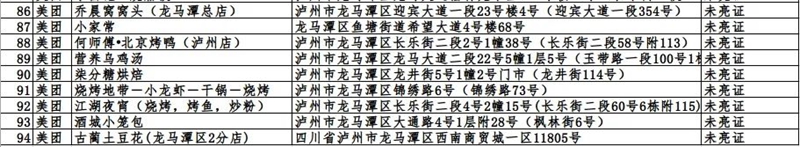 86 美团 乔晨窝窝头（龙马潭总店） 泸州市龙马潭区迎宾大道一段23号楼4号（迎宾大道一段354号） 未亮证
87 美团 小家常 龙马潭区鱼塘街道希望大道4号楼68号 未亮证
88 美团 何师傅•北京烤鸭（泸州店） 泸州市龙马潭区长乐街二段2号1幢38号（长乐街二段58号附113） 未亮证
89 美团 营养乌鸡汤 泸州市龙马潭区龙马大道二段22号5幢1层5号（玉带路一段100号1栋 未亮证
90 美团 柒分糖烘焙 泸州市龙马潭区龙井街5号1幢2号门市（龙井街114号） 未亮证
91 美团 烧烤地带－小龙虾－干锅－烧烤 泸州市龙马潭区锦绣路6号（锦绣路73号） 未亮证
92 美团 江湖夜宵（烧烤，烤鱼，炒粉） 泸州市龙马潭区长乐街二段4号2幢15号(长乐街二段60号6栋附115) 未亮证
93 美团 酒城小笼包 泸州市龙马潭区大通路4号1层附28号（枫林街6号） 未亮证
94 美团 古蔺土豆花(龙马潭区2分店) 四川省泸州市龙马潭区西南商贸城一区11805号 未亮证